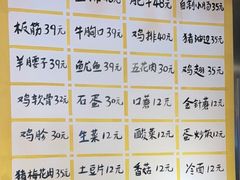 板筋39元 牛胸口39元 鸡排40元 猪油边35元
羊腰子39元 鱿鱼39元 五花肉30元 鸡翅35元
鸡软骨32元 石蛋30元 口蘑12元 金针菇12元
鸡胗30元 生菜12元 酸菜12元 蛋炒饭12元
猪梅花肉35元 土豆片12元 香菇12元 冷面12元